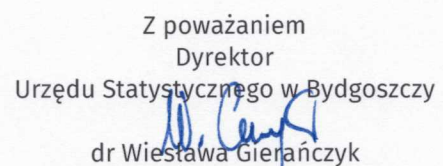 Z poważaniem
Dyrektor
Urzędu Statystycznego w Bydgoszczy
dr Wiesława Gierańczyk